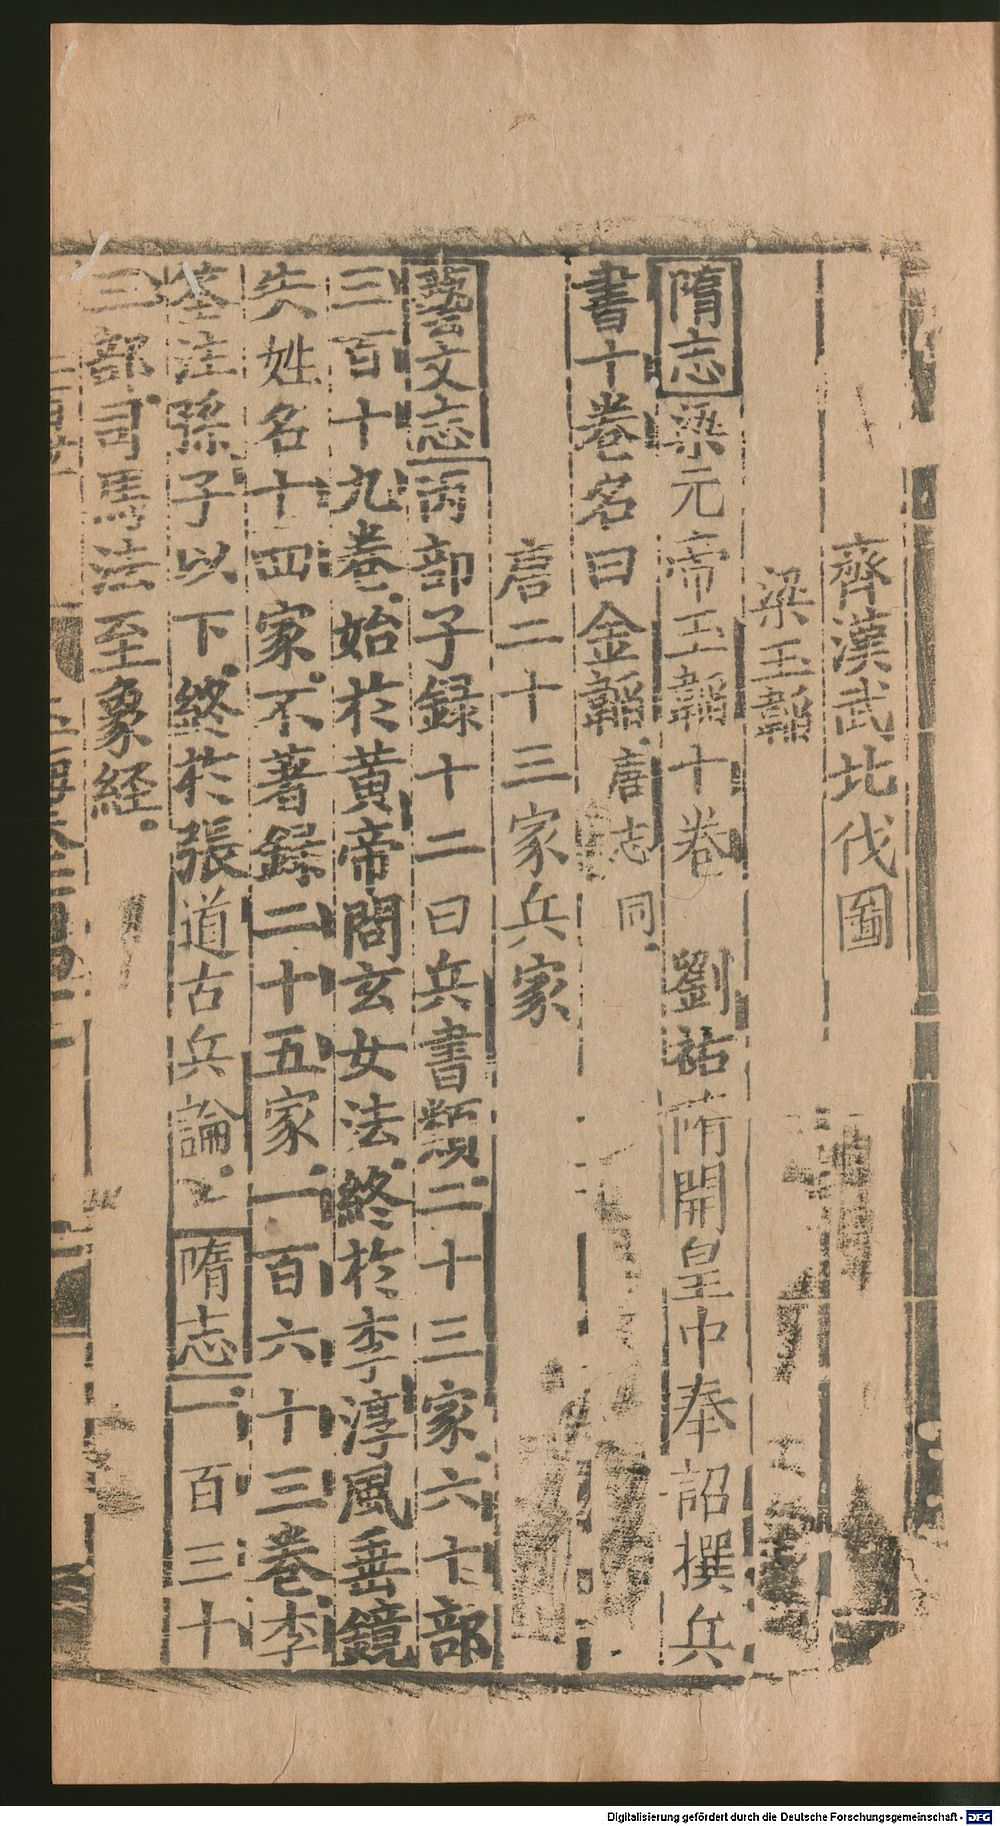 齊漢武北伐圖
梁玉韜
隋志梁元帝玉韜十卷 劉祐隋開皇中奉詔撰兵
書十卷名曰金韜唐志同
唐二十三家兵家
藝文志丙部子録十二曰兵書類二十三家六十部
三百十九卷始於黃帝問玄女法終於李淳風垂鏡
失姓名十四家不著録二十五家一百六十三卷李
筌注孫子以下終於張道古兵論 隋志一百三十
三部司馬法至象経
Digitalisierung gefördert durch die Deutsche Forschungsgemeinschaft - DFG